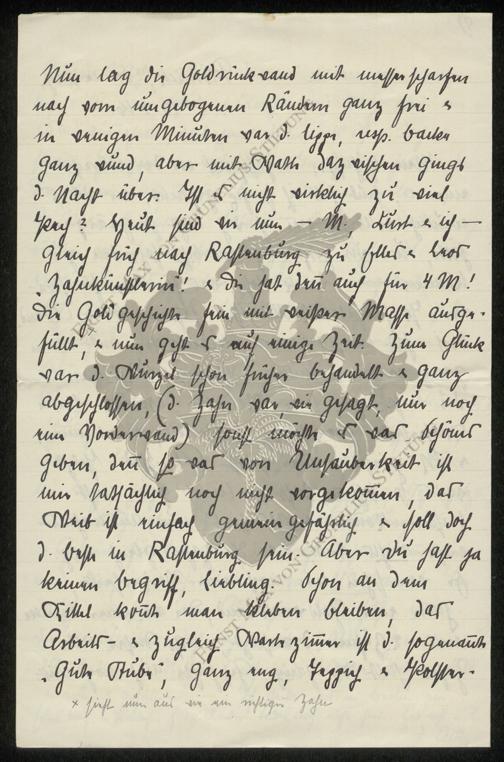 Nun lag die Goldrückwand mit messerscharfen
nach vorn umgebogenen Rändern ganz frei &
in wenigen Minuten war d. Lippe, resp. Backe
ganz wund, aber mit Watte dazwischen gings
d. Nacht über. Ist es nicht wirklich zu viel
Pech? Heut sind wir nun – M. Kurt & ich –
gleich früh nach Rastenburg zu
"Zahnkünstlerin"! & die hat denn auch für 4 M!
die Goldgeschichte fein mit weißer Masse ausge-
füllt, & nun geht es auch einige Zeit. Zum Glück
war d. Wurzel schon früher behandelt & ganz
abgeschlossen, (d. Zahn war, wie gesagt, nur noch
eine Vorderwand) sonst möchte es was Schönes
geben, denn so was von Unsauberkeit ist
mir tatsächlich noch nicht vorgekommen, das
Weib ist einfach gemeingefährlich & soll doch
d. beste in Rastenburg sein. Aber Du hast ja
keinen Begriff, Liebling. Schon an dem
Kittel konnte man kleben bleiben, das
Arbeits- & zugleich Wartezimmer ist d. sogenannte
"Gute Stube", ganz eng, Teppich & Polster-
x sieht nun aus wie ein richtiger Zahn